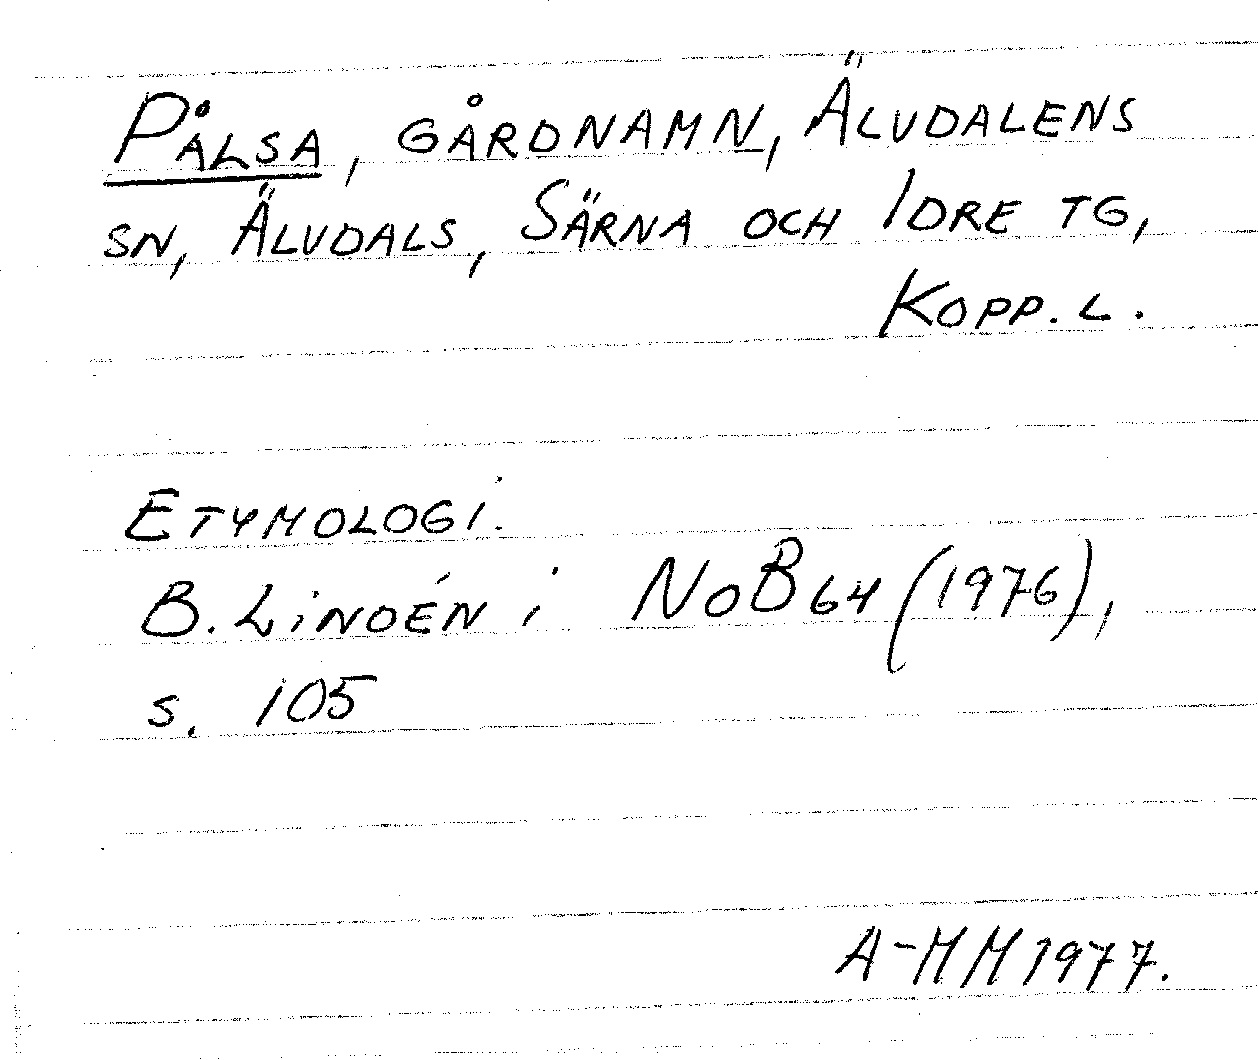 PÅLSA, GÅRDNAMN, ÄLVDALENS
SN, ÄLVDALS, SÄRNA OCH IDRE TG,
KOPP. L.
ETYMOLOGI.
B. LINDÉN i NoB 64 (1976),
s. 105
A-MM 1977.